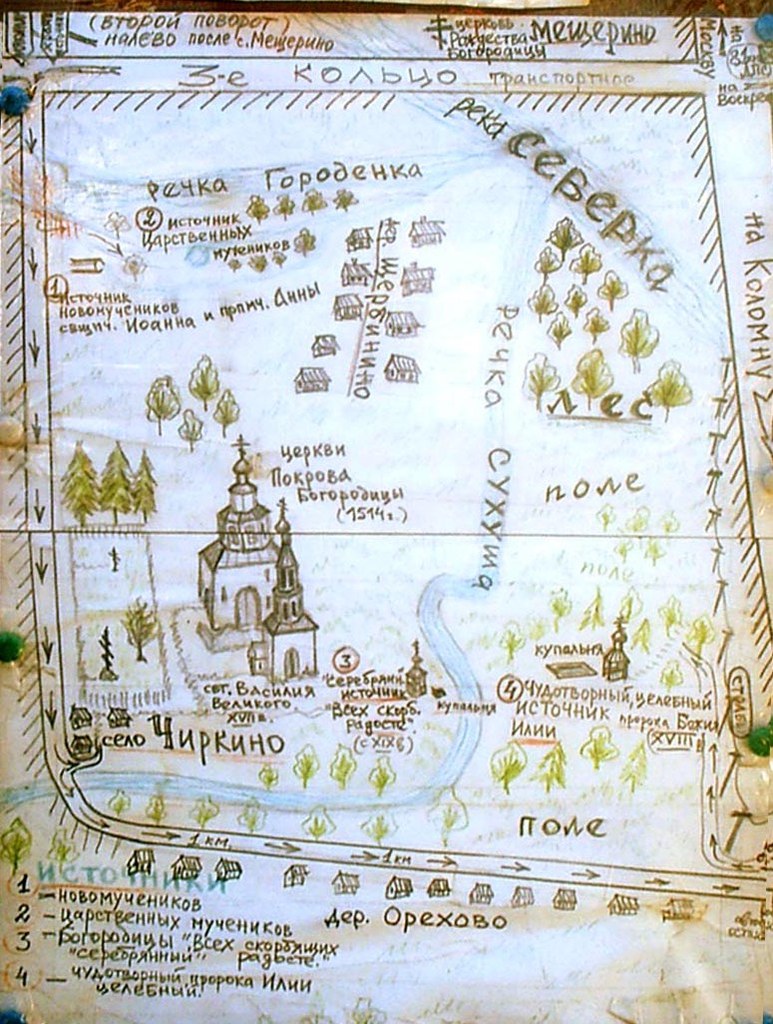 (второй поворот)
налево после с. Мещерино
церковь
Рождества
Богородицы
Мещерино
Москву
на
на
3-е кольцо транспортное
река Северка
речка Городенка
2 источник
Царственных
мучеников
1
источник
новомучеников
свщмч. Иоанна и прпмч. Анны
Щербинино
речка Сухуша
лес
на Коломну
церкви
Покрова
Богородицы
(1514 г.)
поле
поле
свт. Василия
Великого.
XVII в.
3
"Серебряный"
источник
"Всех скорб.
радосте"
(с XIX в)
купальня
купальня
4 Чудотворный, целебный
источник пророка Божия
Илии
XVIII в
село Чиркино
поле
1 км.
1 км
дер. Орехово
источники
1 – новомучеников
2 – царственных мучеников
3 – Богородицы "Всех скорбящих
"серебрянный" радосте."
4 – чудотворный пророка Илии
целебный.